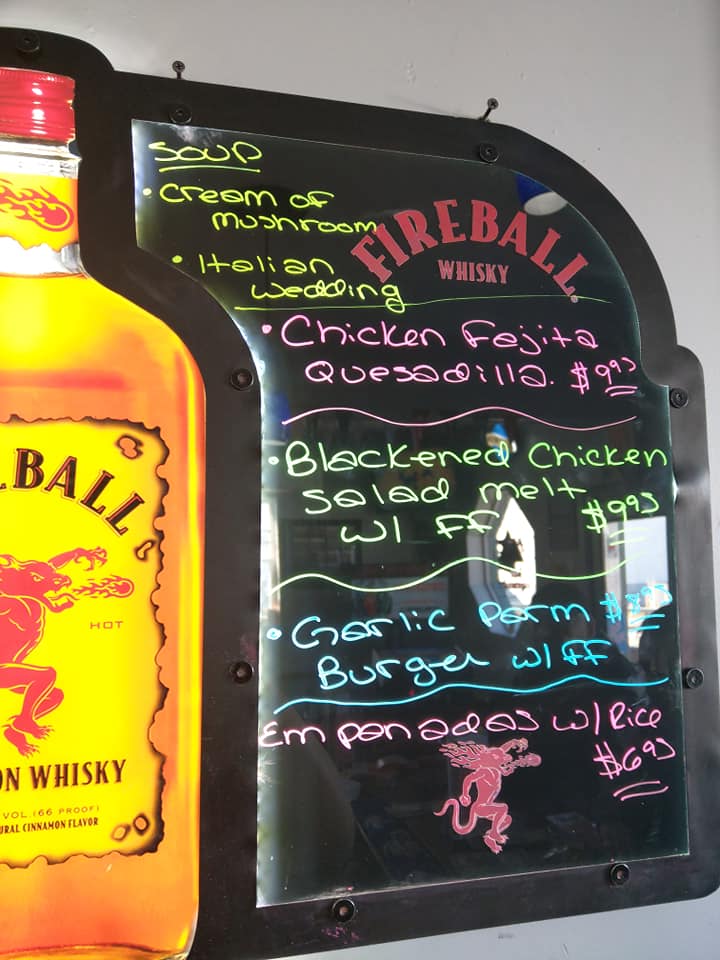 SOUP
• Cream of
mushroom
• Italian
wedding
FIREBALL
WHISKY
• Chicken Fajita
Quesadilla. $9.95
• Blackened Chicken
Salad melt
w/ FF $9.95
• Garlic Parm
Burger w/ FF
Empanadas w/ Rice
$6.95
BALL
HOT
ON WHISKY
VOL. (66 PROOF)
URAL CINNAMON FLAVOR